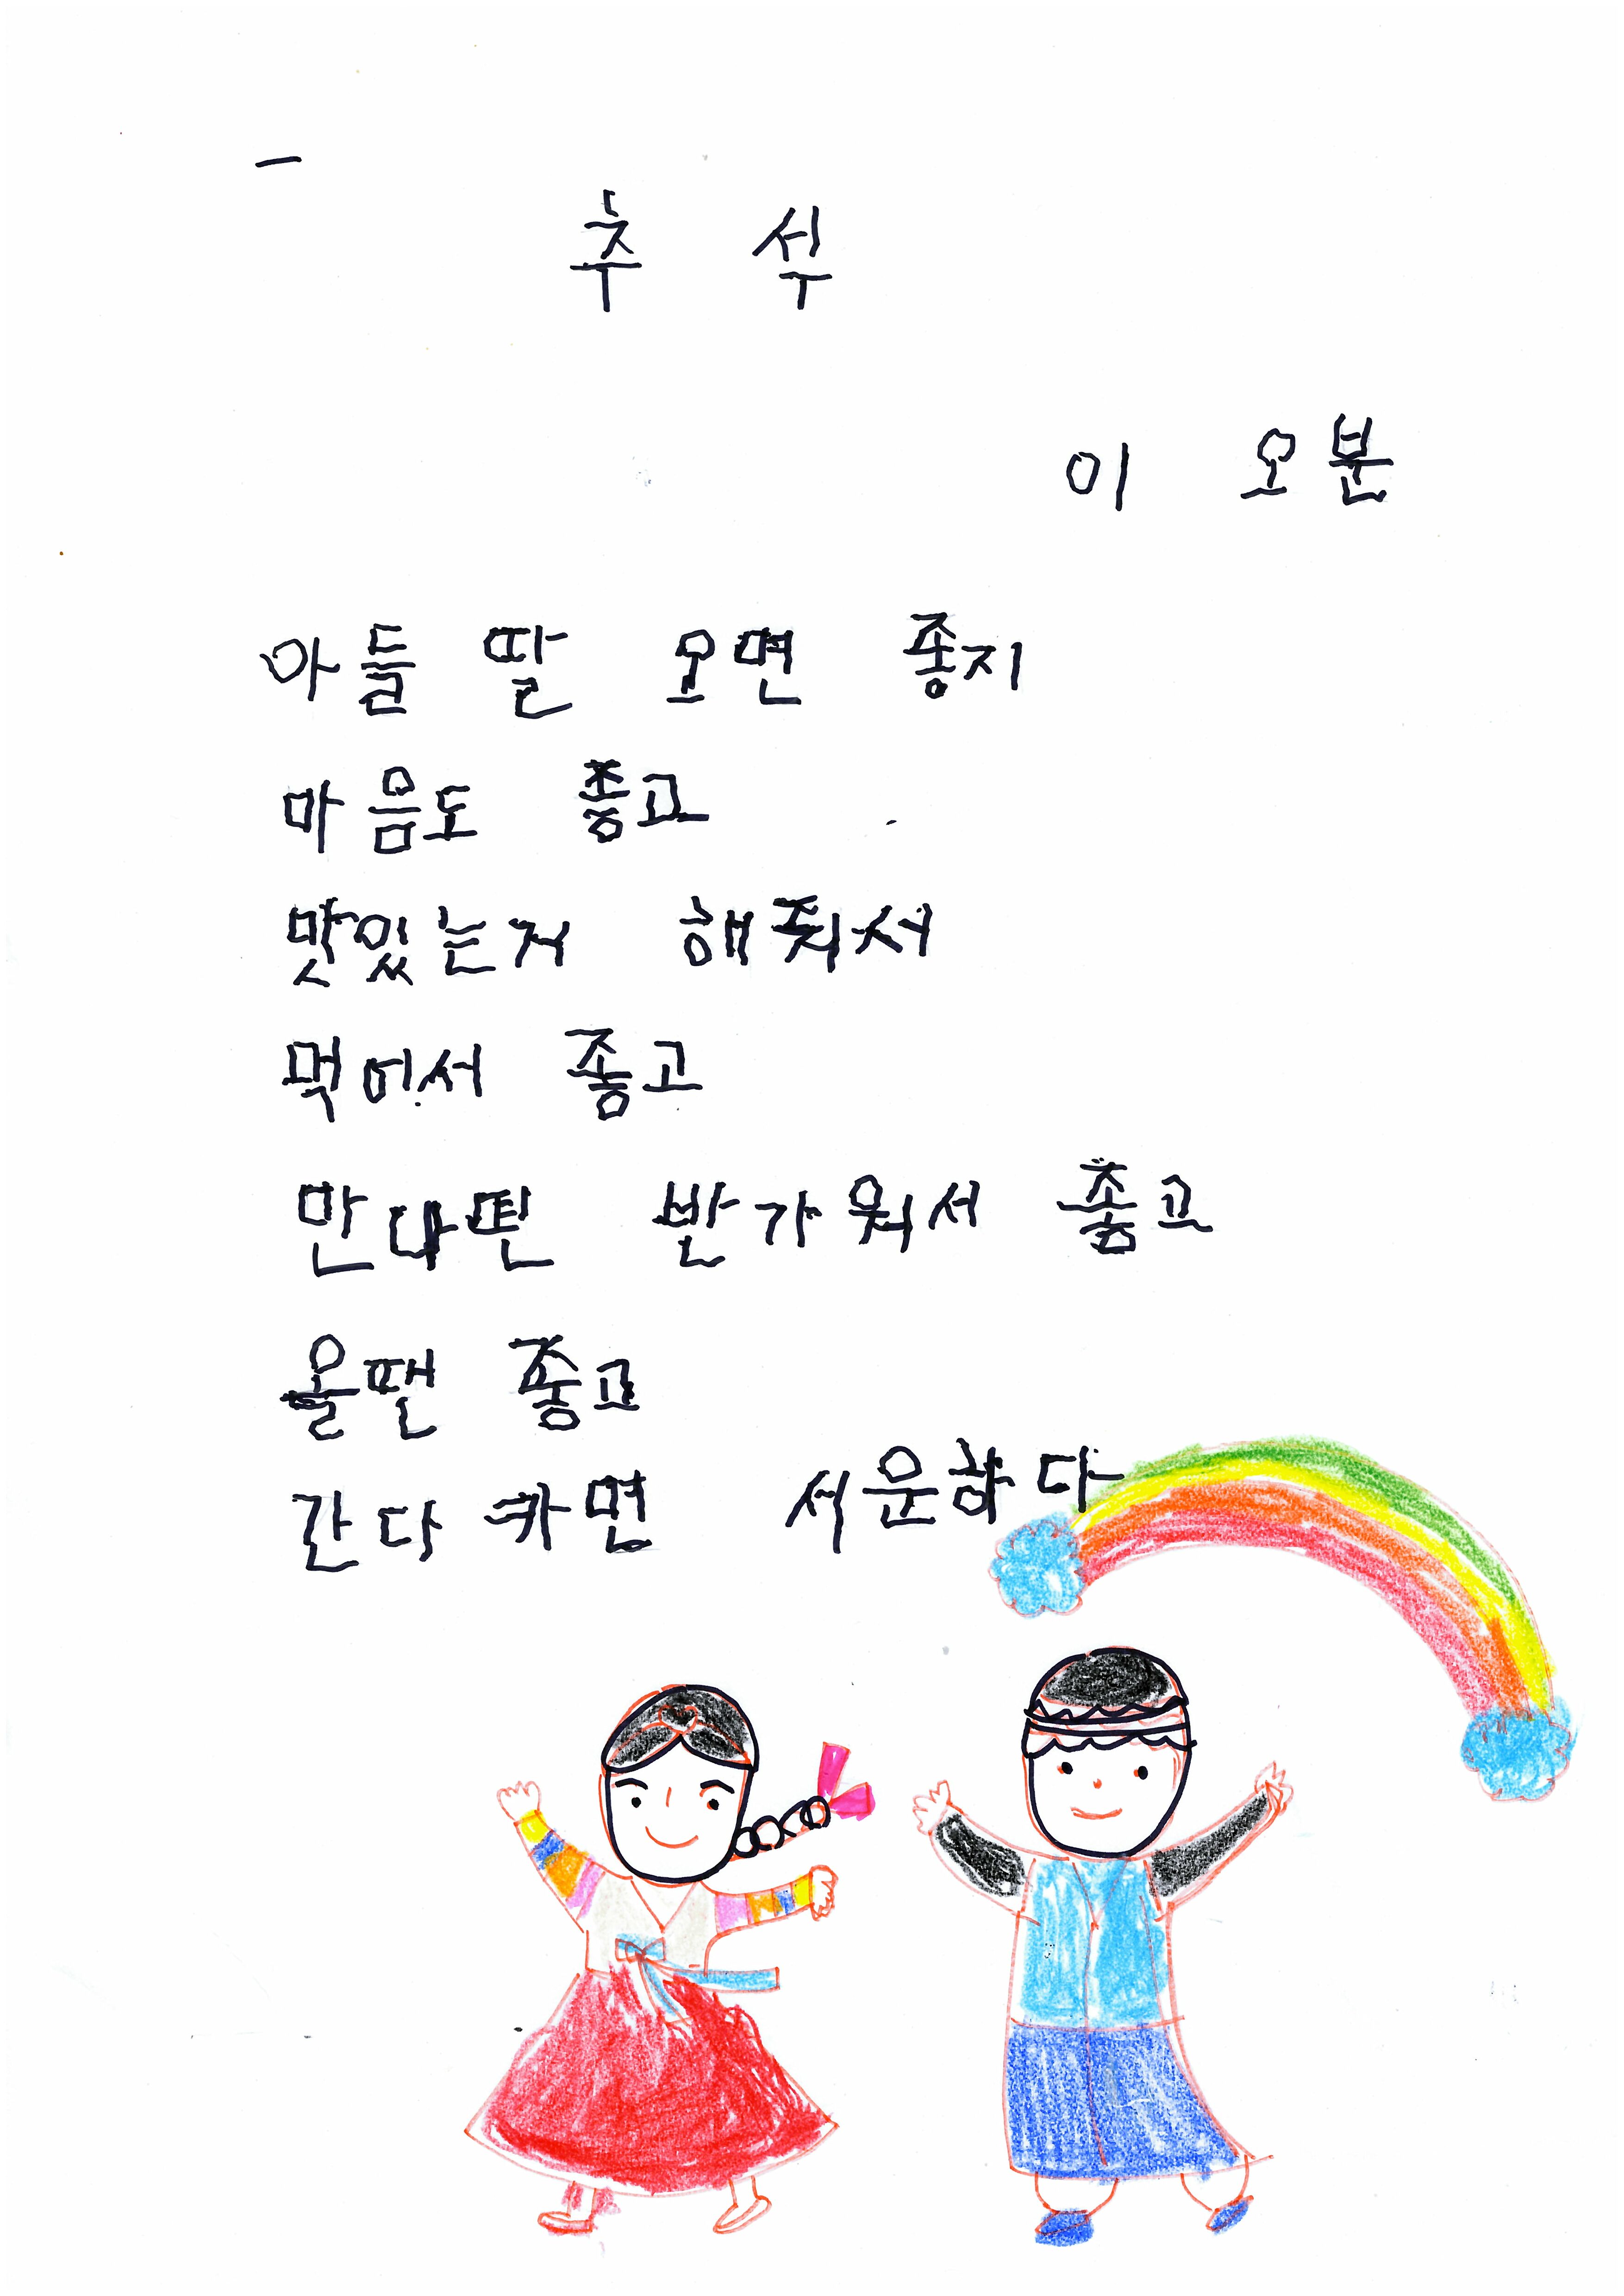 추 석
이 오분
아들 딸 오면 좋지
마음도 좋고
맛있는거 해줘서
먹어서 좋고
만나면 반가워서 좋고
올땐 좋고
간다 카면 서운하다